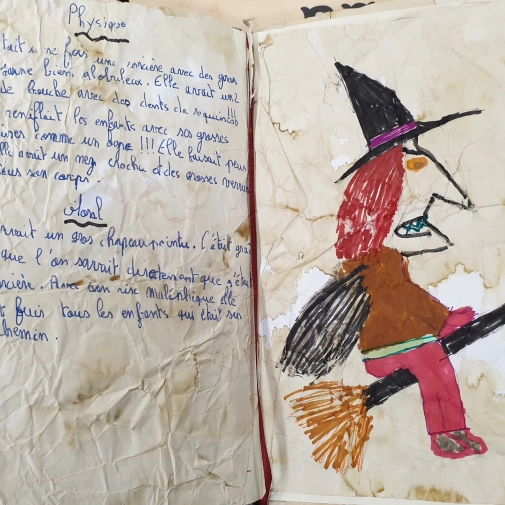 Physique
tait u ne fois une sorcière avec des gros
jaune bien globuleux. Elle avait un
de bouche avec des dents de requin
reniflait les enfants avec ses grosses
comme un ogre !!! Elle faisait peur
lle avait un nez crochu et des grosses verrues
ous son corps.
Moral
avait un gros chapeau pointu. C'était gra
que l'on savait directement que c'éta
orcière. Avec son rire maléfique elle
t fuir tous les enfants qui était sur
chemin.